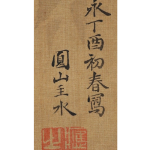 永丁酉初春寫
圓山主水